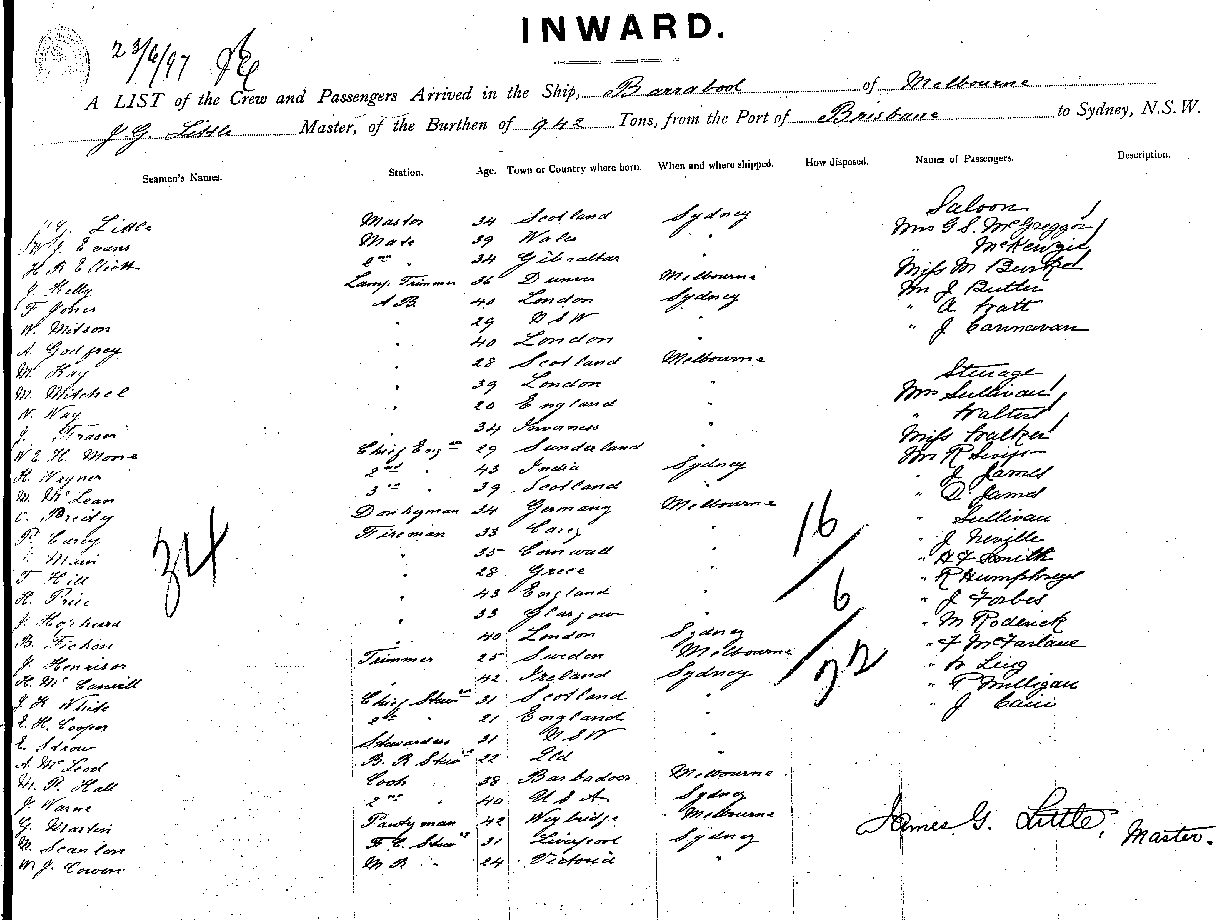 INWARD.
23/6/97
A LIST of the Crew and Passengers Arrived in the Ship, Barrabool of Melbourne
J. G. Little Master, of the Burthen of 942 Tons, from the Port of Brisbane to Sydney, N.S.W.
Seamen's Names. Station. Age. Town or Country where born. When and where shipped. How disposed. Names of Passengers. Description.
Saloon
J. G. Little Master 34 Scotland Sydney Mrs G. S. McGreggor
W J Evans Mate 39 Wales " " McKenzie
H. R Elliott 2nd " 34 Gibraltar " Miss M
J. Kelly Lamp Trimmer 36 Melbourne Mr J Butler
F Jones A B. 40 London Sydney " A
W. Mitson " 29 N S W " " J
A. Godfrey " 40 London "
M. Kay " 28 Scotland Melbourne
Steerage
M. Mitchel " 39 London " Mrs Sullivan
W. Way " 20 England " "
J. Fraser " 34 Inverness " Miss Walker
W E. H. Moore Chief Engr 29 Sunderland " Mr R
H. Wegner 2nd " 43 India Sydney " J James
M. McLean 3rd " 39 Scotland " " D
C. Donkeyman 34 Germany Melbourne " Sullivan
P. Carey Fireman 33 " " J Neville
Main " 35 Cornwall " " Smith
F Hill " 28 Grece " " R Humphreys
H. Price " 43 England " " J Forbes
J. " 33 Glasgow " " M Roderick
B. " 40 London Sydney " F McFarlane
J. Trimmer 25 Sweden Melbourne " W Ling
H. Mc " 42 Ireland Sydney " P Milligan
J. K White Chief Stewd 31 Scotland " " J
E. H. Cooper 2nd " 21 England "
E. Stewardess 31 N S W "
A. McLeod B. R Stewd 22 Qld "
M. R. Hall Cook 38 Barbadoes Melbourne
J. Warne 2nd " 40 U S A Sydney
G. Martin Pantryman 42 Weybridge Melbourne
M. Scanlon F. C. Stewd 31 Liverpool Sydney
W. J. Cowen M R " 24 Victoria "
34
16
6
22
James G. Little,
Master.